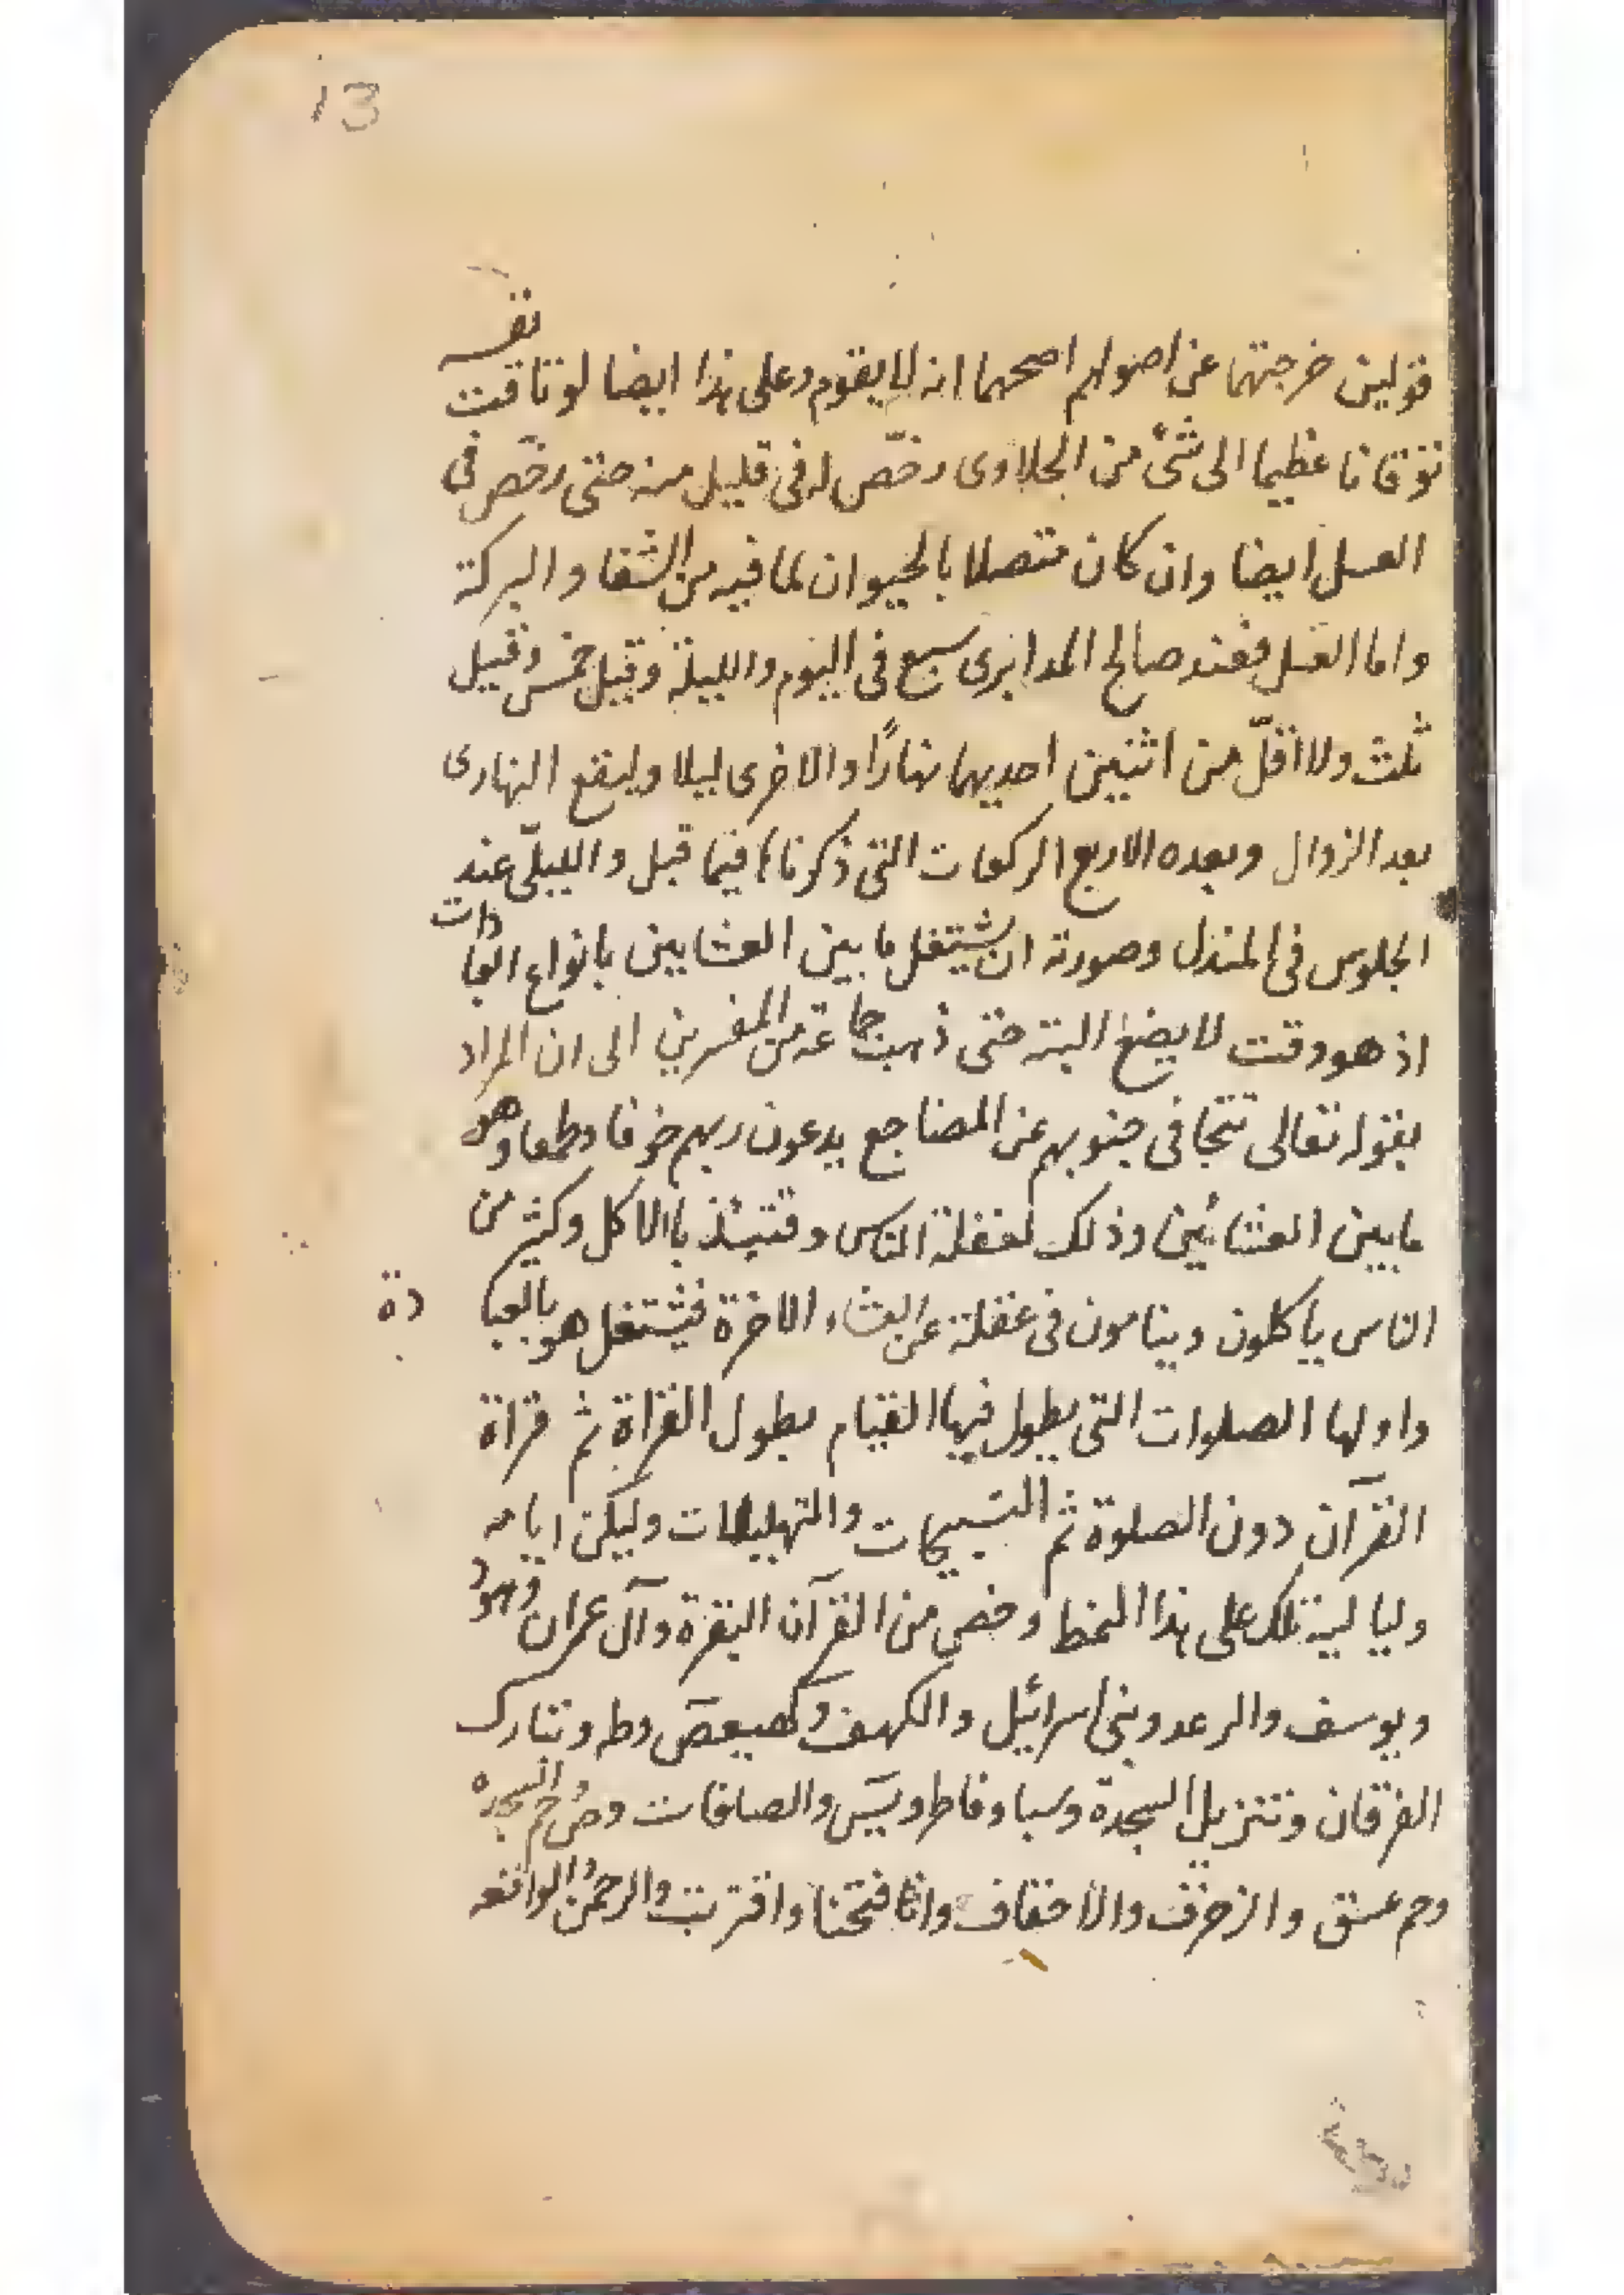 13
قولين خرجتهما عن اصولهم اصحهما انه لا يقوم وعلى هذا ايضا لو تاقت نفسه
توقانا عظيما الى شئ من الحلاوى رخّص له فى قليل منه حتى رخّص فى
العسل ايضا وان كان متصلا بالحيوان لما فيه من الشفا والبركة
واما الغسل فعند صالح المدابرى سبع فى اليوم والليلة وقيل خمس وقيل
ثلث ولا اقلّ من اثنين احديهما نهارًا والاخرى ليلا وليقع النهارى
بعد الزوال وبعده الاربع الركعات التى ذكرناها فيما قبل والليلىّ عند
الجلوس فى المنزل وصورته ان يشتغل ما بين العشايين بانواع العبادات
اذ هو وقت لا يضيع البتة حتى ذهب جماعة من المفسرين الى ان المراد
بقوله تعالى تتجافى جنوبهم عن المضاجع يدعون ربهم خوفا وطمعا وهو
ما بين العشائين وذلك لغفلة الناس وقتيئذ بالاكل وكثير من
الناس ياكلون وينامون فى غفلة عن العشاء الاخرة فيشتغل هو بالعبادة
واولها الصلوات التى يطول فيها القيام بطول القراة ثم قراة
القرآن دون الصلوة ثم التسبيحات والتهليلات وليكن ايامه
ولياليه تلك على هذا النمط وخص من القرآن البقرة وآل عمران وهود
ويوسف والرعد وبنى اسرائيل والكهف وكهيعص وطه وتبارك
الفرقان وتنزيل السجدة وسبا وفاطر ويس والصافات وص وحم السجدة
وحم عسق والزخرف والاحقاف وانا فتحنا واقتربت والرحمن والواقعه